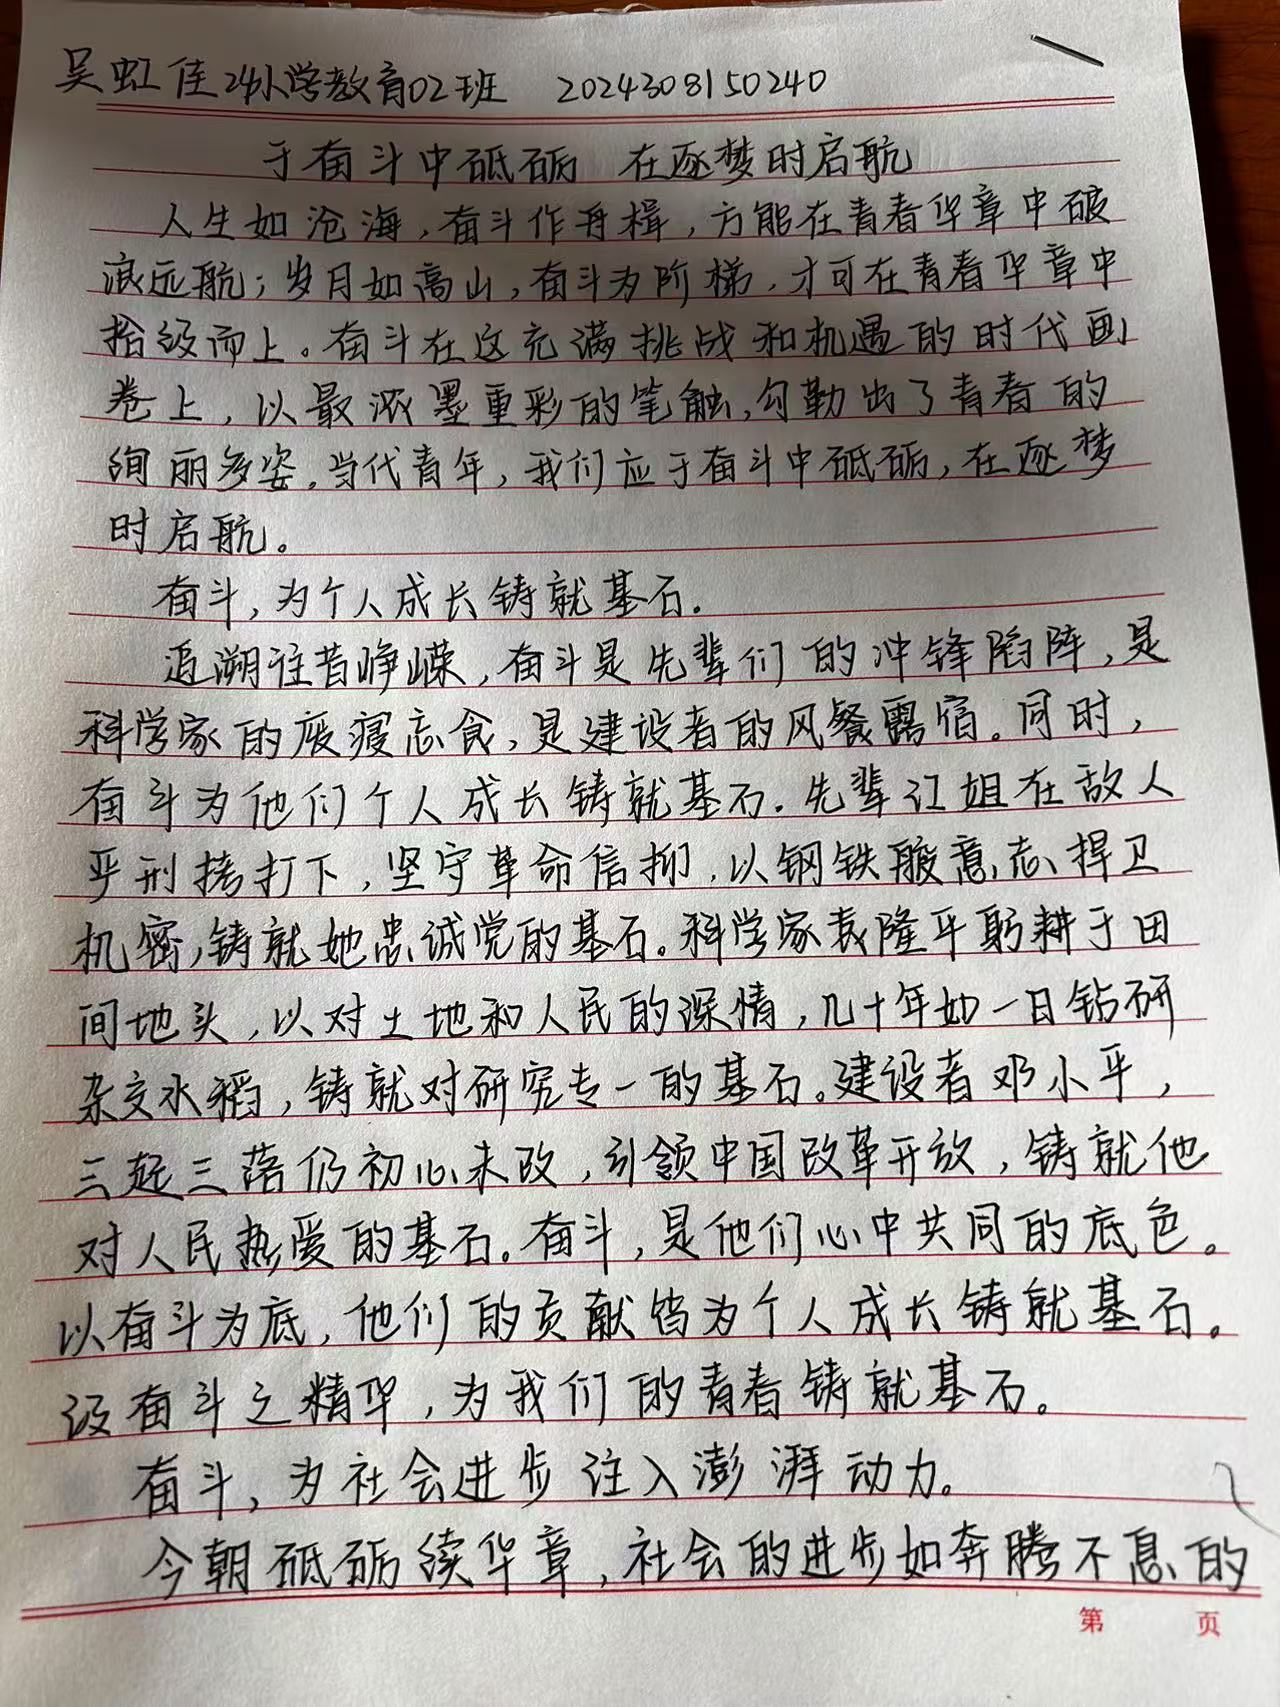 吴虹佳24小学教育02班 2024308150240
于奋斗中砥砺 在逐梦时启航
人生如沧海，奋斗作舟楫，方能在青春华章中破
浪远航；岁月如高山，奋斗为阶梯，才可在青春华章中
拾级而上。奋斗在这充满挑战和机遇的时代画
卷上，以最浓墨重彩的笔触，勾勒出了青春的
绚丽多姿。当代青年，我们应于奋斗中砥砺，在逐梦
时启航。
奋斗，为个人成长铸就基石。
追溯往昔峥嵘，奋斗是先辈们的冲锋陷阵，是
科学家的废寝忘食，是建设者的风餐露宿。同时，
奋斗为他们个人成长铸就基石。先辈江姐在敌人
严刑拷打下，坚守革命信仰，以钢铁般意志捍卫
机密，铸就她忠诚党的基石。科学家袁隆平躬耕于田
间地头，以对土地和人民的深情，几十年如一日钻研
杂交水稻，铸就对研究专一的基石。建设者邓小平，
三起三落仍初心未改，引领中国改革开放，铸就他
对人民热爱的基石。奋斗，是他们心中共同的底色。
以奋斗为底，他们的贡献皆为个人成长铸就基石。
汲奋斗之精华，为我们的青春铸就基石。
奋斗，为社会进步注入澎湃动力。
今朝砥砺续华章，社会的进步如奔腾不息的
第 页